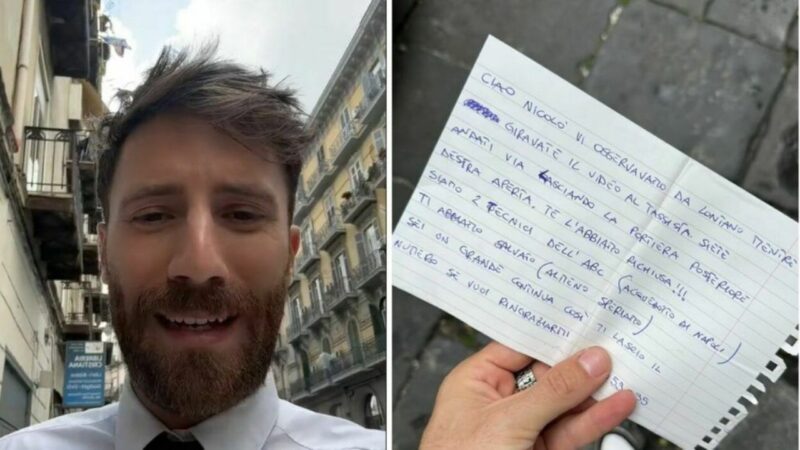 LIBRERIA
CRISTIANA
CIAO NICOLO' VI OSSERVAVAMO DA LONTANO MENTRE
GIRAVATE IL VIDEO AL TASSISTA SIETE
ANDATI VIA LASCIANDO LA PORTIERA POSTERIORE
DESTRA APERTA. TE L'ABBIAMO RICHIUSA!!!
SIAMO 2 TECNICI DELL'ABC (ACQUEDOTTO DI NAPOLI)
TI ABBIAMO SALVATO (ALMENO SPERIAMO)
SEI UN GRANDE CONTINUA COSI' TI LASCIO IL
NUMERO SE VUOI RINGRAZIARTI